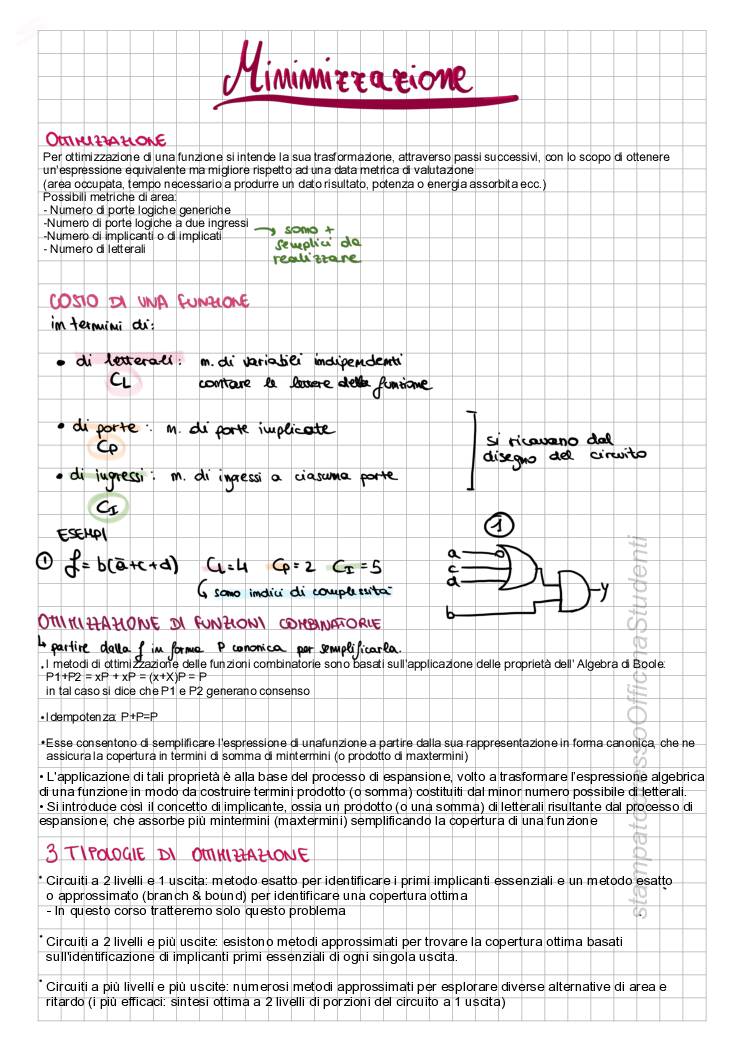 Minimizzazione
OTTIMIZZAZIONE
Per ottimizzazione di una funzione si intende la sua trasformazione, attraverso passi successivi, con lo scopo di ottenere
un'espressione equivalente ma migliore rispetto ad una data metrica di valutazione
(area occupata, tempo necessario a produrre un dato risultato, potenza o energia assorbita ecc.)
Possibili metriche di area:
- Numero di porte logiche generiche
-Numero di porte logiche a due ingressi
-Numero di implicanti o di implicati
- Numero di letterali
→ sono +
semplici da
realizzare
COSTO DI UNA FUNZIONE
in termini di:
• di letterali: n. di variabili indipendenti
CL contare le lettere della funzione
• di porte: n. di porte implicate
CP
• di ingressi: n. di ingressi a ciascuna porte
CI
si ricavano dal
disegno del circuito
ESEMPI
① f = b(ā+c+d) CL=4 CP=2 CI=5
↳ sono indici di complessità
①
a
c
d
b
y
OTTIMIZZAZIONE DI FUNZIONI COMBINATORIE
↳ partire dalla f in forma P canonica per semplificarla.
• I metodi di ottimizzazione delle funzioni combinatorie sono basati sull'applicazione delle proprietà dell' Algebra di Boole:
P1+P2 = xP + xP = (x+X)P = P
in tal caso si dice che P1 e P2 generano consenso
• Idempotenza: P+P=P
•Esse consentono di semplificare l'espressione di unafunzione a partire dalla sua rappresentazione in forma canonica, che ne
assicura la copertura in termini di somma di mintermini (o prodotto di maxtermini)
• L'applicazione di tali proprietà è alla base del processo di espansione, volto a trasformare l'espressione algebrica
di una funzione in modo da costruire termini prodotto (o somma) costituiti dal minor numero possibile di letterali.
• Si introduce così il concetto di implicante, ossia un prodotto (o una somma) di letterali risultante dal processo di
espansione, che assorbe più mintermini (maxtermini) semplificando la copertura di una funzione
3 TIPOLOGIE DI OTTIMIZZAZIONE
• Circuiti a 2 livelli e 1 uscita: metodo esatto per identificare i primi implicanti essenziali e un metodo esatto
o approssimato (branch & bound) per identificare una copertura ottima
- In questo corso tratteremo solo questo problema
• Circuiti a 2 livelli e più uscite: esistono metodi approssimati per trovare la copertura ottima basati
sull'identificazione di implicanti primi essenziali di ogni singola uscita.
• Circuiti a più livelli e più uscite: numerosi metodi approssimati per esplorare diverse alternative di area e
ritardo (i più efficaci: sintesi ottima a 2 livelli di porzioni del circuito a 1 uscita)
stampatopressoOfficinaStudenti